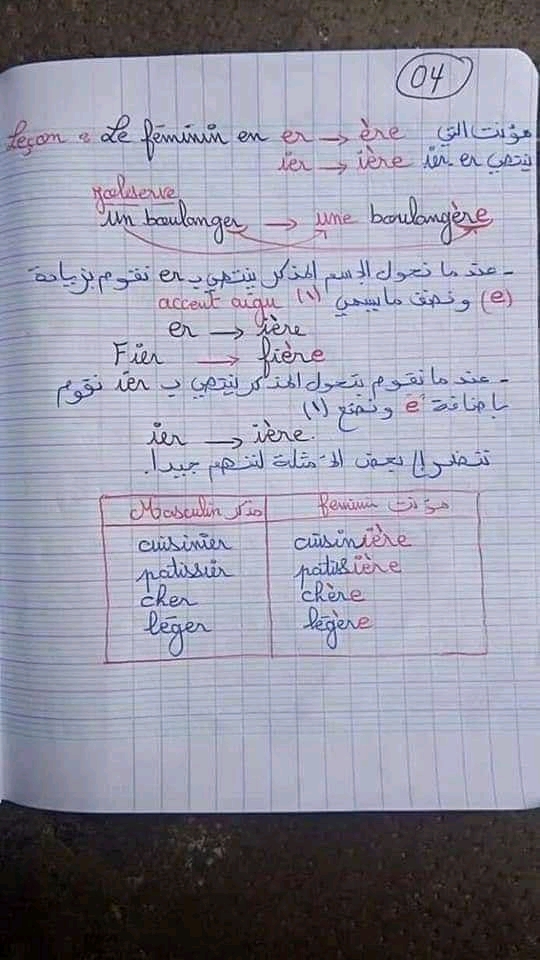 04
Leçon : Le féminin en er → ère مؤنث التي
ier → ière ier - er ينتهي
J'observe
un boulanger → une boulangère
- عندما نحول الإسم المذكر ينتهي ب er نقوم بزيادة
(e) ونضف ما يسمى (\) accent aigu
er → ière
Fier → fière
- عندما نقوم بتحول المذكر لينتهي ب ier نقوم
بإضافة e ونضع (\)
ier → ière.
نتضر إلى بعض الأمثلة لنفهم جيدا.
Masculin مذكر | feminin مؤنث
cuisinier | cuisinière
patissier | patissière
cher | chère
léger | légère